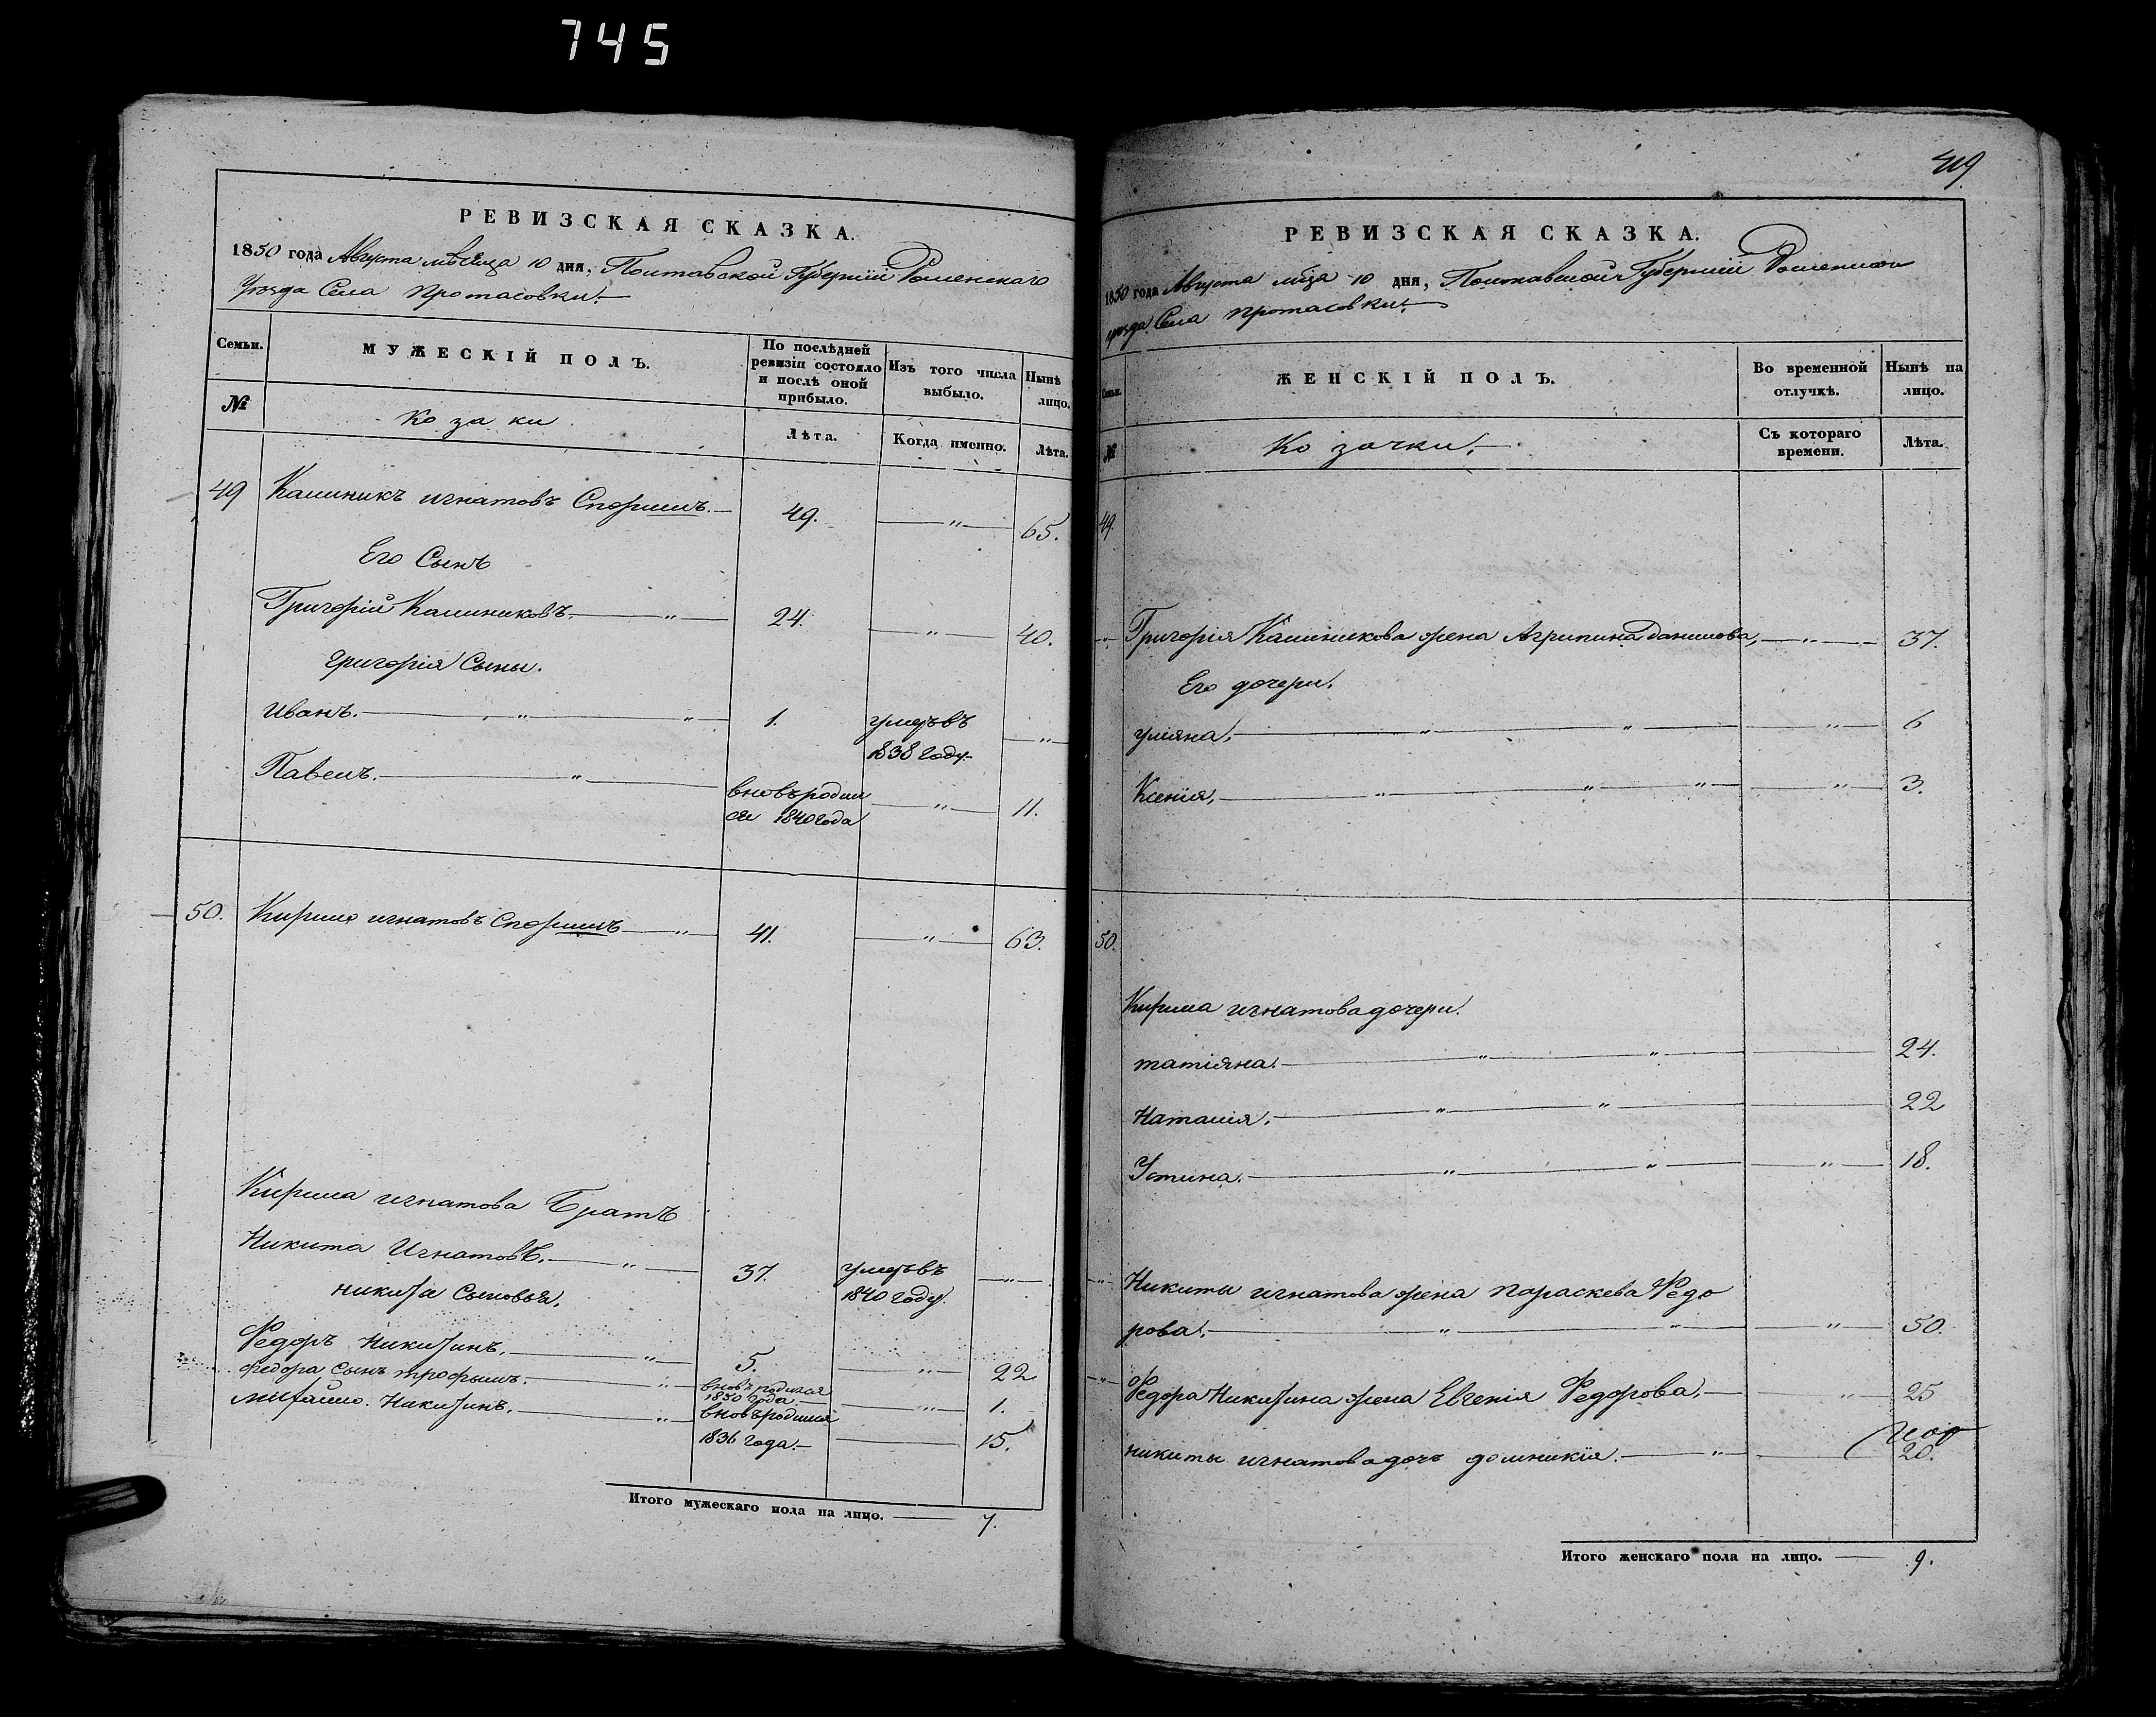 745
РЕВИЗСКАЯ СКАЗКА.
1850 года Августа месяца 10 дня, Полтавской Губерніи Роменскаго
Уезда Села Протасовки.
Семьи.
МУЖЕСКІЙ ПОЛЪ.
По послѣдней ревизіи состояло и послѣ оной прибыло.
Изъ того числа выбыло.
Нынѣ лицо.
№
Козаки
Лѣта.
Когда именно.
Лѣта.
49 Калиникъ игнатовъ Споришъ. 49. " 65.
Его Сынъ
Григорій Калиниковъ. " 24. " 40.
григорія Сыны.
Иванъ. " " 1. умеръ въ "
1838 году
Павелъ. " вновь родил " 11.
ся 1840 года
50. Кирило игнатовъ Споришъ " 41. " 63.
Кирила игнатова Братъ
Никита Игнатовъ. " 37. умеръ въ "
1840 году.
никиты Сыновья.
Федоръ Никитинъ. " 5. " 22
федора Сынъ трофымъ. " вновь родился " 1.
1850 года.
михайло. Никитинъ. " вновь родился 15.
1836 года.
Итого мужескаго пола на лицо. 7.
419
РЕВИЗСКАЯ СКАЗКА.
1850 года Августа мца 10 дня, Полтавской Губерніи Роменскаго
уезда Села Протасовки.
Семьи.
ЖЕНСКІЙ ПОЛЪ.
Во временной отлучкѣ.
Нынѣ на лицо.
№
Козачки.
Съ котораго времени.
Лѣта.
49.
" Григорія Калиникова жена Агрипина Данилова, " 37.
Его дочери.
уліяна. " " " 6
Ксенія, " " " " 3.
50.
Кирила игнатова дочери.
татіяна. " " 24.
Наталія. " " 22
Устина. " " " 18.
" Никиты игнатова жена Параскева Федо
рова. " " " 50.
" Федора Никитина жена Евгенія Федорова. " 25
никиты игнатова дочь домникія. " 20.
Итого женскаго пола на лицо. 9.